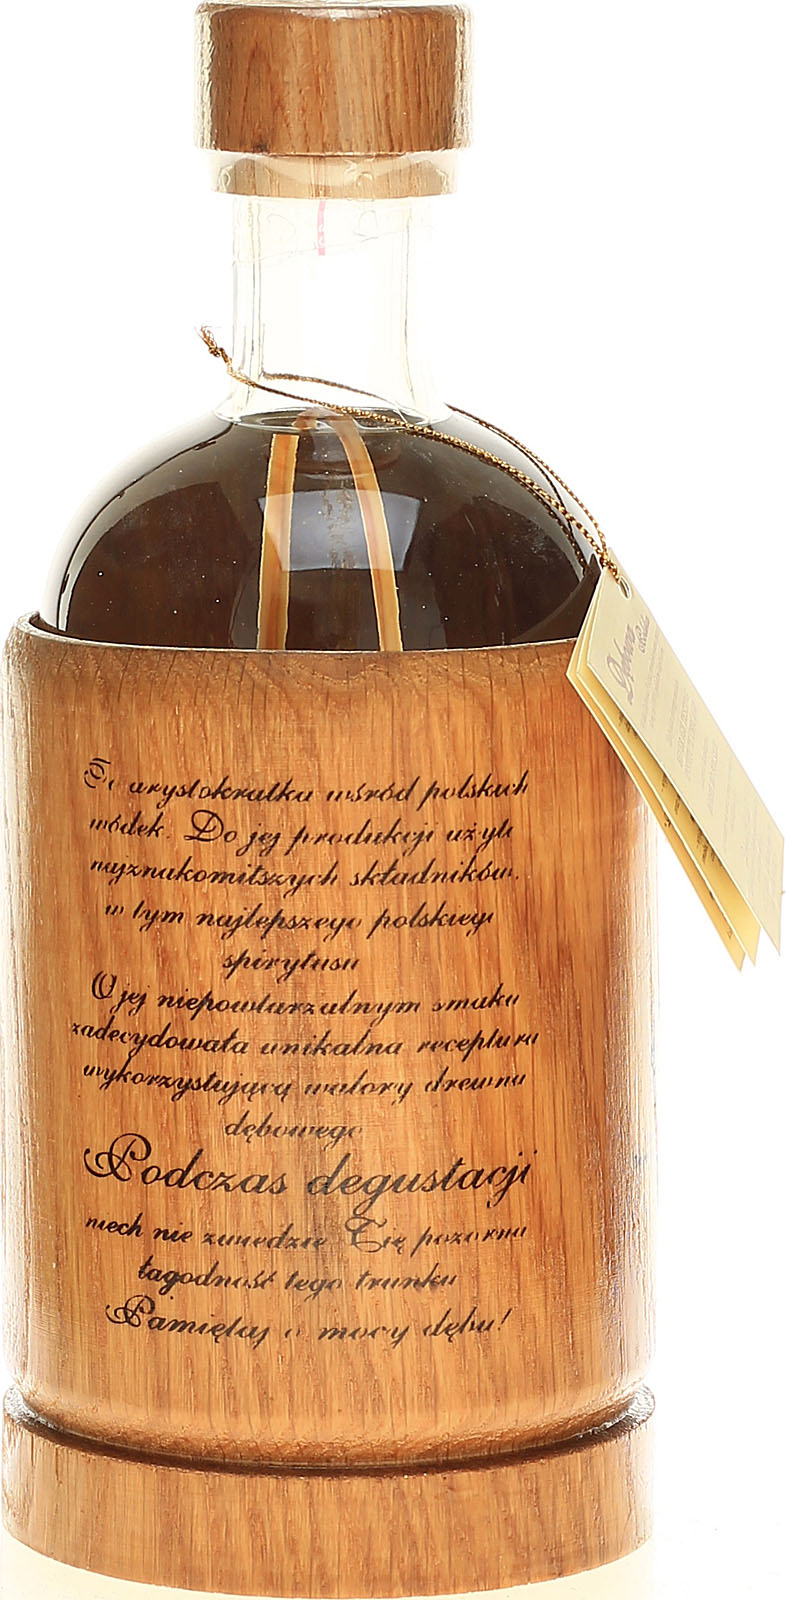 To arystokratka wśród polskich
wódek. Do jej produkcji użyto
najznakomitszych składników.
w tym najlepszego polskiego
spirytusu
O jej niepowtarzalnym smaku
zadecydowała unikalna receptura
wykorzystująca walory drewna
dębowego
Podczas degustacji
niech nie zwiedzie Cię pozorna
łagodność tego trunku
Pamiętaj o mocy dębu!
Dębowa
Polska